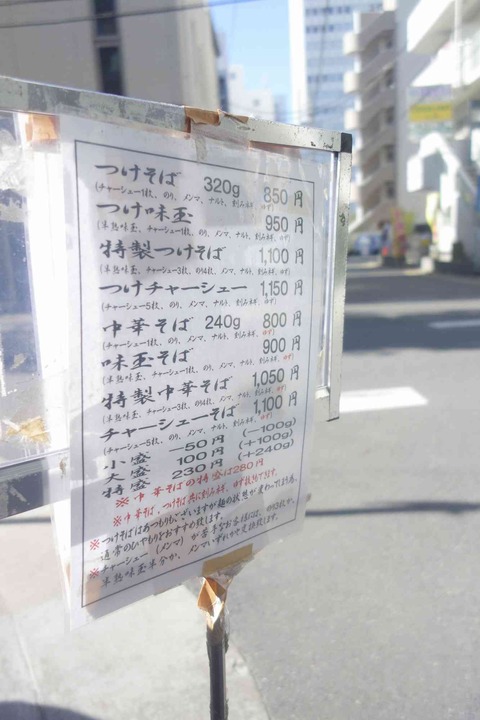 つけそば 320g 850円
(チャーシュー1枚、のり、メンマ、ナルト、刻み玉ネギ、ゆず)
つけ味玉 950円
(半熟味玉、チャーシュー1枚、のり、メンマ、ナルト、刻み玉ネギ、ゆず)
特製つけそば 1,100円
(半熟味玉、チャーシュー3枚、のり4枚、メンマ、ナルト、刻み玉ネギ、ゆず)
つけチャーシュー 1,150円
(チャーシュー5枚、のり、メンマ、ナルト、刻み玉ネギ、ゆず)
中華そば 240g 800円
(チャーシュー1枚、のり、メンマ、ナルト、刻み玉ネギ、ゆず)
味玉そば 900円
(半熟味玉、チャーシュー1枚、のり、メンマ、ナルト、刻み玉ネギ、ゆず)
特製中華そば 1,050円
(半熟味玉、チャーシュー3枚、のり4枚、メンマ、ナルト、刻み玉ネギ、ゆず)
チャーシューそば 1,100円
(チャーシュー5枚、のり、メンマ、ナルト、刻み玉ネギ、ゆず)
小盛 －50円 (－100g)
大盛 100円 (＋100g)
特盛 230円 (＋240g)
※中華そばの特盛は280円
※中華そば、つけそば共に刻み玉ネギ、ゆず抜き
※つけそばはあつもりもございますが麺の状態が変わって
通常のひやもりをおすすめ致します。
※チャーシュー(メンマ)が苦手なお客様には、のり3枚か、
半熟味玉半分か、メンマいずれかで交換致します。